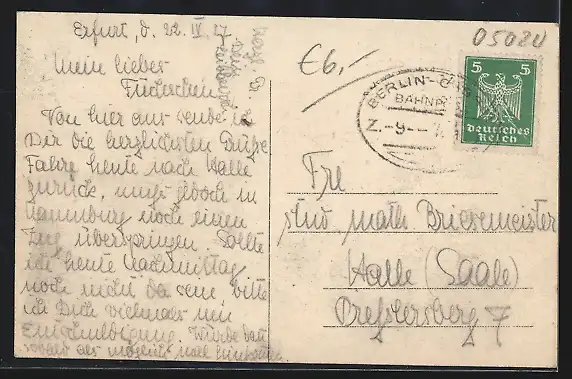 Erfurt, d. 22. IV. 27
Mein lieber
Von hier aus sende ich
Dir die herzlichsten Grüße
Fahre heute nach Halle
zurück, muß jedoch in
Naumburg noch einen
Zug überspringen. Sollte
ich heute Nachmittag
noch nicht da sein, bitte
ich Dich vielmals um
Entschuldigung. Würde dann
sobald als möglich nach
€6,-
05020
BERLIN-
BAHNP
Z.
5 5
Deutsches
Reich
stud math Briesemeister
Halle (Saale)
Presslersberg 7